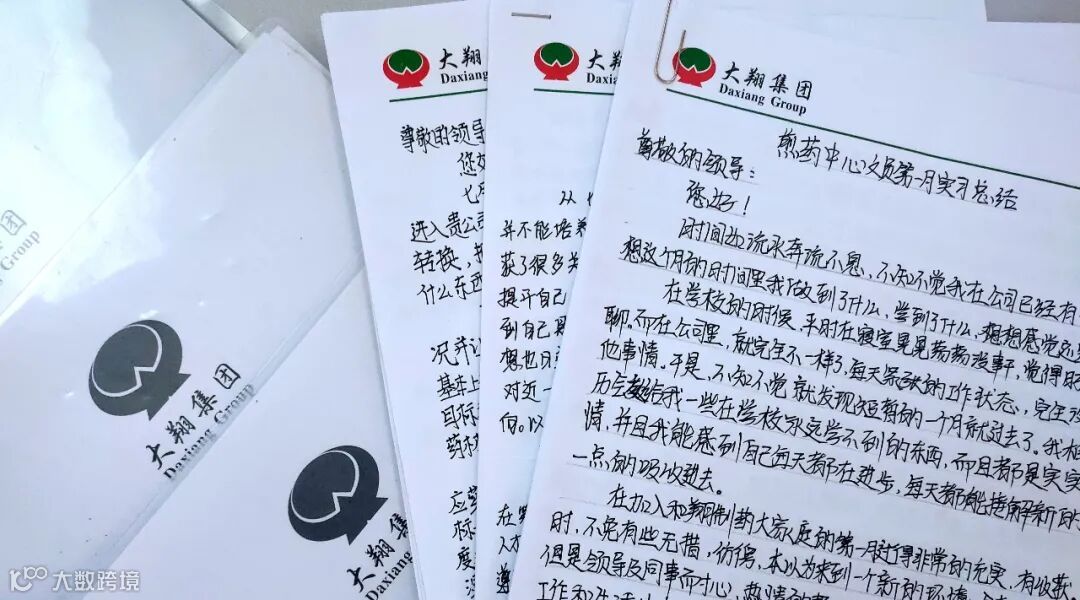 大翔集团
Daxiang Group
大翔集团
Daxiang Group
大翔集
Daxiang
尊敬的领导
您好
七月
进入贵公司
转换,
什么东西
况并
基本上
目标
药材
标
度
大翔
Daxia
从
并不能培养
获了很多关
提升自己
到自己
想也日
对近一
向。以
大翔集团
Daxiang Group
煎药中心文员第一月实习总结
尊敬的领导:
您好!
时间如流水奔流不息,不知不觉我在公司已经有
想这个月的时间里我做到了什么,学到了什么,想想感觉还是
在学校的时候,平时在寝室晃晃荡荡没事干,觉得
聊。而在公司里,就完全不一样了,每天紧张的工作状态,完全没
他事情。于是,不知不觉就发现短暂的一个月就过去了。我相
历会教给我一些在学校永远学不到的东西,而且都是实实
情,并且我能感到自己每天都在进步,每天都能把解新的
一点的吸收进去。
在加入和翔制药大家庭的第一月过得非常的充实,有收获。
时,不免有些无措,彷徨,本以为来到一个新的环境,
但是领导及同事耐心、热情的帮
工作和生活
大数跨境